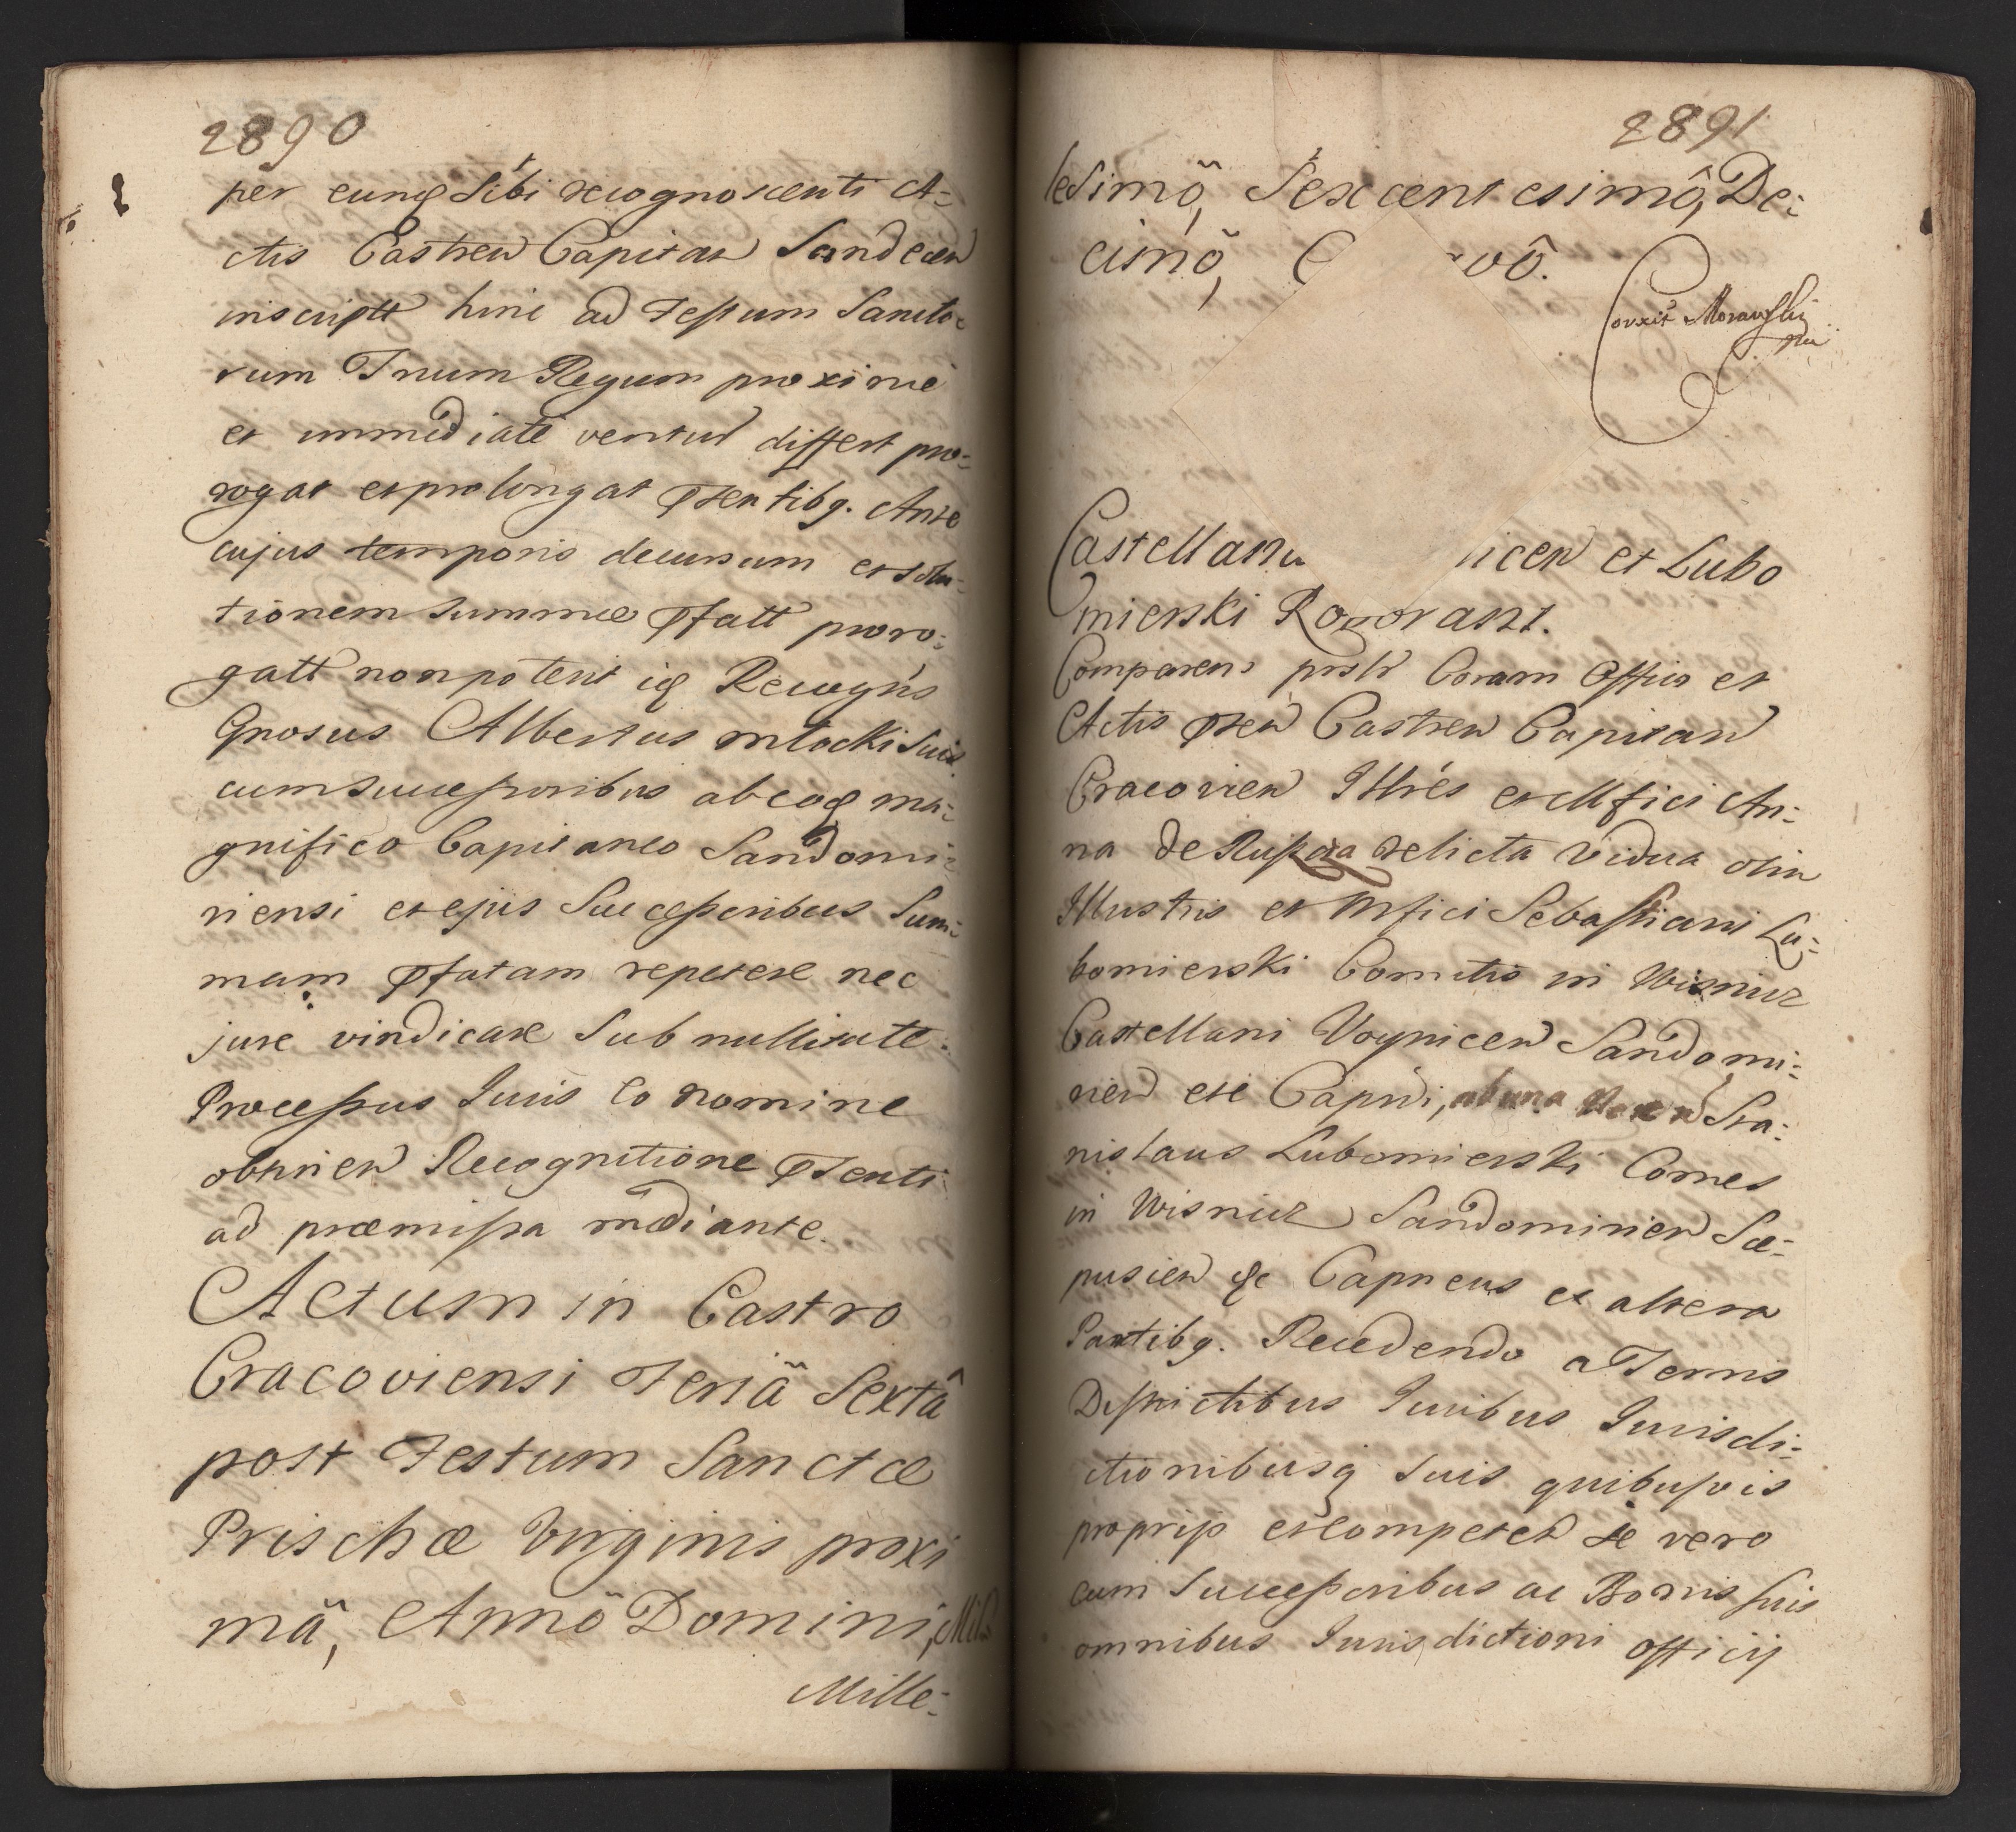 2890
per eunq Sibi recognoscenti A-
ctis Castren Capitan Sandecen
inscriptt hinc ad Festum Sancto-
rum Trium Regum proxime
et immediate ventur differt pro-
rogat et prolongat pñtibq. Ante
cujus temporis decursum et solu-
tionem Summæ pfatt proro-
gatt non poterit iq Recogñs
Gnosus Albertus Mlocki Suis
cum Successoribus ab eoq Ma-
gnifico Capitaneo Sandomi-
riensi et ejus Successoribus Sum-
mam pfatam repetere nec
jure vindicare Sub nullitate.
Processus Iuris eo nomine
obtinen Recognitione pñti
ad præmissa mediante.
Actum in Castro
Cracoviensi Feriâ Sextâ
post Festum Sanctæ
Prischæ Virginis proxi
mâ, Annô Domini,
Mille-
2891
lesimô, Sexcentesimô, De-
cimô, voô.
Corrxit Moravsky
Castellanu nicen et Lubo
mierski Roborant.
Comparens prstr Coram Officio et
Actis pñten Castren Capitan
Cracovien Illres et Mfici An-
na de Ruszcza relicta Vidua olim
Illustris et Mfici Sebastiani Lu-
bomierski Comitis in Wisnicz
Castellani Voynicen Sandomi-
rien etc Capnei, ab una Sta-
nislaus Lubomierski Comes
in Wisnicz Sandomirien Sce-
pusien &c Capneus ex altera
Partibq. Recedendo a Terris
Districtibus Iuribus Iurisdi-
ctionibusq Suis quibusvis
proprijs et competen se vero
cum Successoribus ac Bonis Suis
omnibus Iurisdictioni Officij